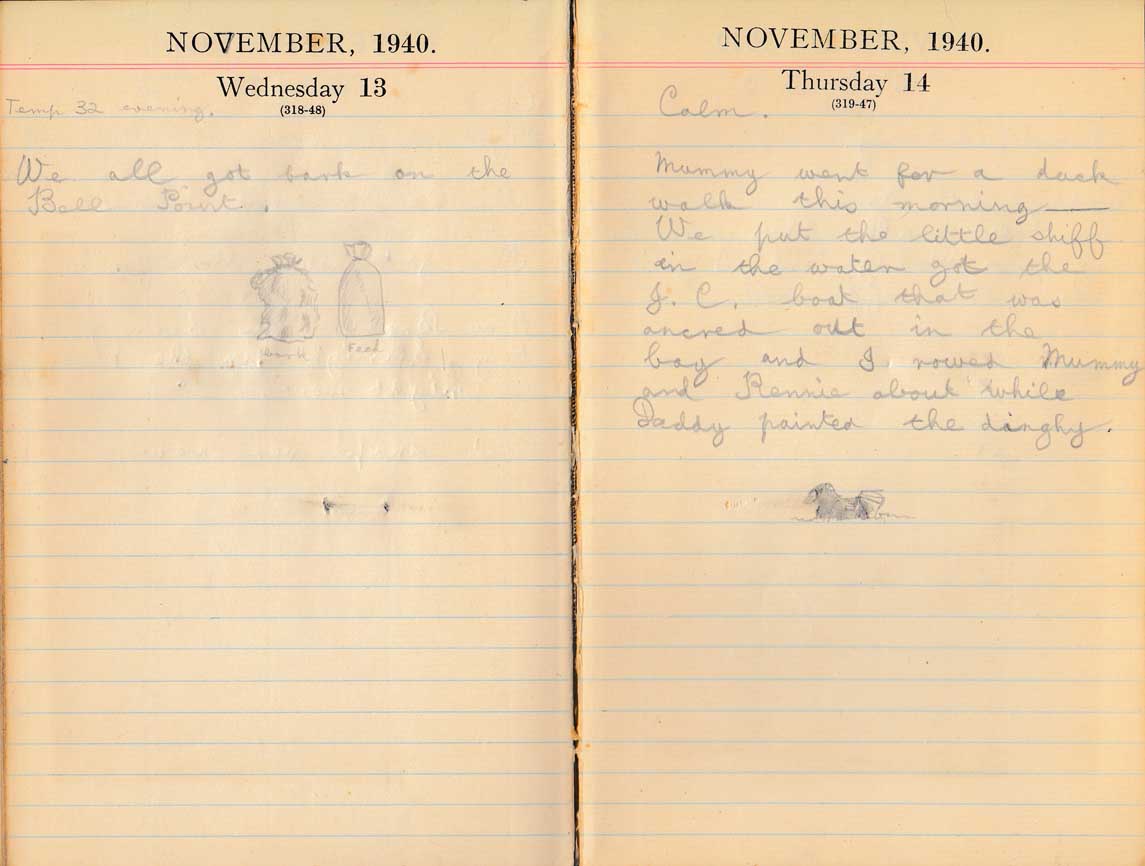 NOVEMBER, 1940.
Wednesday 13
(318-48)
Temp 32 evening.
We all got bark on the
Bell Point.
bark Feed
NOVEMBER, 1940.
Thursday 14
(319-47)
Calm.
Mummy went for a duck
walk this morning —
We put the little skiff
in the water got the
J. C. boat that was
ancred out in the
bay and I rowed Mummy
and Rennie about while
Daddy painted the dinghy.